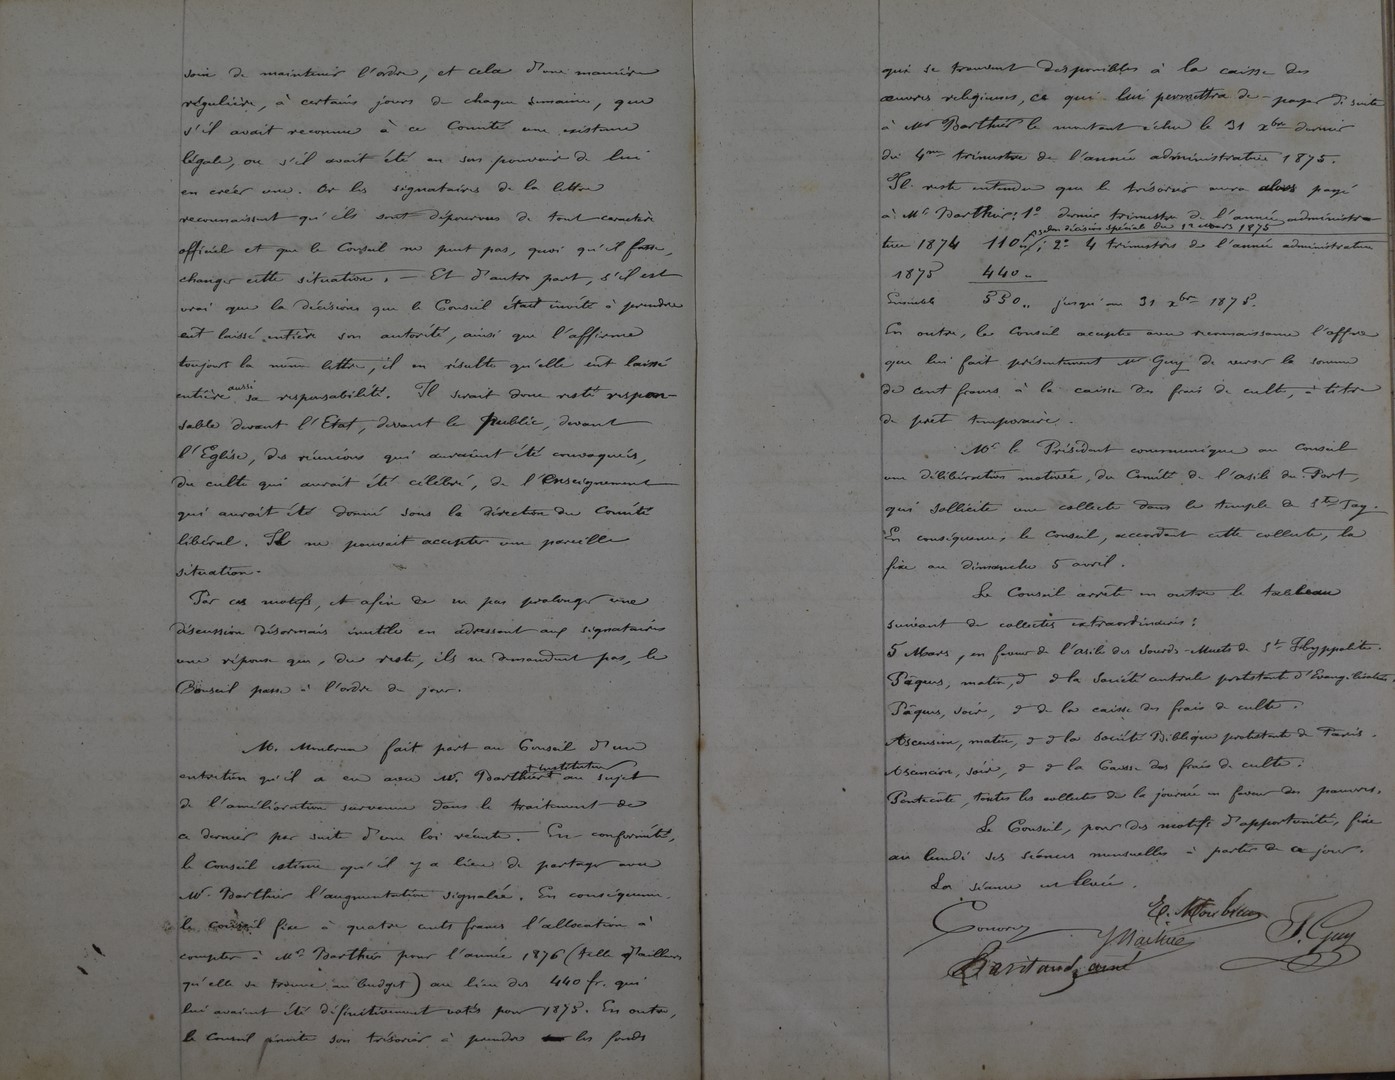 soin de maintenir l'ordre, et cela d'une manière
régulière, à certains jours de chaque semaine, que
s'il avait reconnu à ce Comité une existence
légale, ou s'il avait été en son pouvoir de lui
en créer une. Or les signataires de la lettre
reconnaissent qu'ils sont dépourvus de tout caractère
officiel et que le Conseil ne peut pas, quoi qu'il fasse,
changer cette situation. — Et d'autre part, s'il est
vrai que la décision que le Conseil était invité à prendre
eût laissé entière son autorité, ainsi que l'affirme
toujours la même lettre, il en résulte qu'elle eût laissé
entière aussi sa responsabilité. Il serait donc resté respon-
sable devant l'Etat, devant le public, devant
l'Eglise, des réunions qui auraient été convoquées,
du culte qui aurait été célébré, de l'Enseignement
qui aurait été donné sous la direction du Comité
libéral. Il ne pouvait accepter une pareille
situation.
Par ces motifs, et afin de ne pas prolonger une
discussion désormais inutile en adressant aux signataires
une réponse que, du reste, ils ne demandent pas, le
Conseil passe à l'ordre du jour.
M. Moulrun fait part au Conseil d'un
entretien qu'il a eu avec Mr. Barthier instituteur au sujet
de l'amélioration survenue dans le traitement de
ce dernier par suite d'une loi récente. En conformité,
le Conseil estime qu'il y a lieu de partager avec
Mr. Barthier l'augmentation signalée. En conséquence
le conseil fixe à quatre cents francs l'allocation à
compter à Mr Barthier pour l'année 1876 (telle d'ailleurs
qu'elle se trouve au budget) au lieu des 440 fr. qui
lui avaient été définitivement votés pour 1875. En outre,
le Conseil invite son trésorier à prendre les fonds
qui se trouvent disponibles à la caisse des
œuvres religieuses, ce qui lui permettra de payer de suite
à Mr Barthier le montant échu le 31 xbre dernier
du 4me trimestre de l'année administrative 1875.
Il reste entendu que le trésorier aura alors payé
à Mr Barthier: 1º dernier trimestre de l'année administra
selon décision spéciale du 12 mars 1875
tive 1874 110 „ ; 2º 4 trimestres de l'année administrative
1875 440 „
Ensemble 550 „ jusqu'au 31 xbre 1875.
En outre, le Conseil accepte avec reconnaissance l'offre
que lui fait présentement Mr Guy de verser la somme
de cent francs à la caisse des frais de culte, à titre
de prêt temporaire.
Mr le Président communique au Conseil
une délibération motivée, du Comité de l'asile du Port,
qui sollicite une collecte dans le temple de Ste Foy.
En conséquence, le Conseil, accordant cette collecte, la
fixe au dimanche 5 avril.
Le Conseil arrête en outre le tableau
suivant de collectes extraordinaires:
5 Mars, en faveur de l'asile des Sourds-Muets de St Hyppolite.
Pâques, matin, d° d la Société centrale protestante d'Evangélisation.
Pâques, soir, d° de la caisse des frais de culte.
Ascension, matin, d° d la société Biblique protestante de Paris.
Ascension, soir, d° d la Caisse des frais de culte.
Pentecôte, toutes les collectes de la journée en faveur des pauvres.
Le Conseil, pour des motifs d'opportunité, fixe
au lundi ses séances mensuelles à partir de ce jour.
La séance est levée.
E. Moulrun
T. Guy